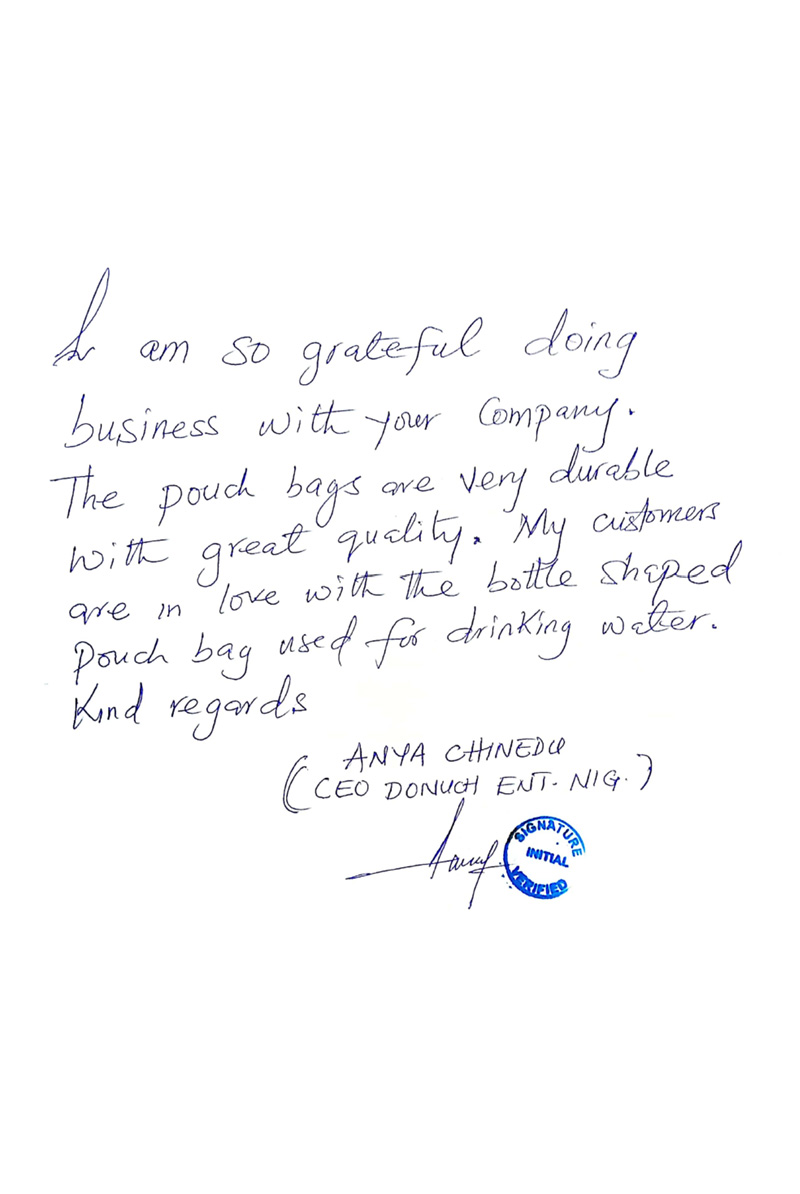 I am so grateful doing
business with your Company.
The pouch bags are very durable
with great quality. My customers
are in love with the bottle shaped
pouch bag used for drinking water.
Kind regards
ANYA CHINEDU
(CEO DONUCH ENT. NIG.)
SIGNATURE
INITIAL
VERIFIED